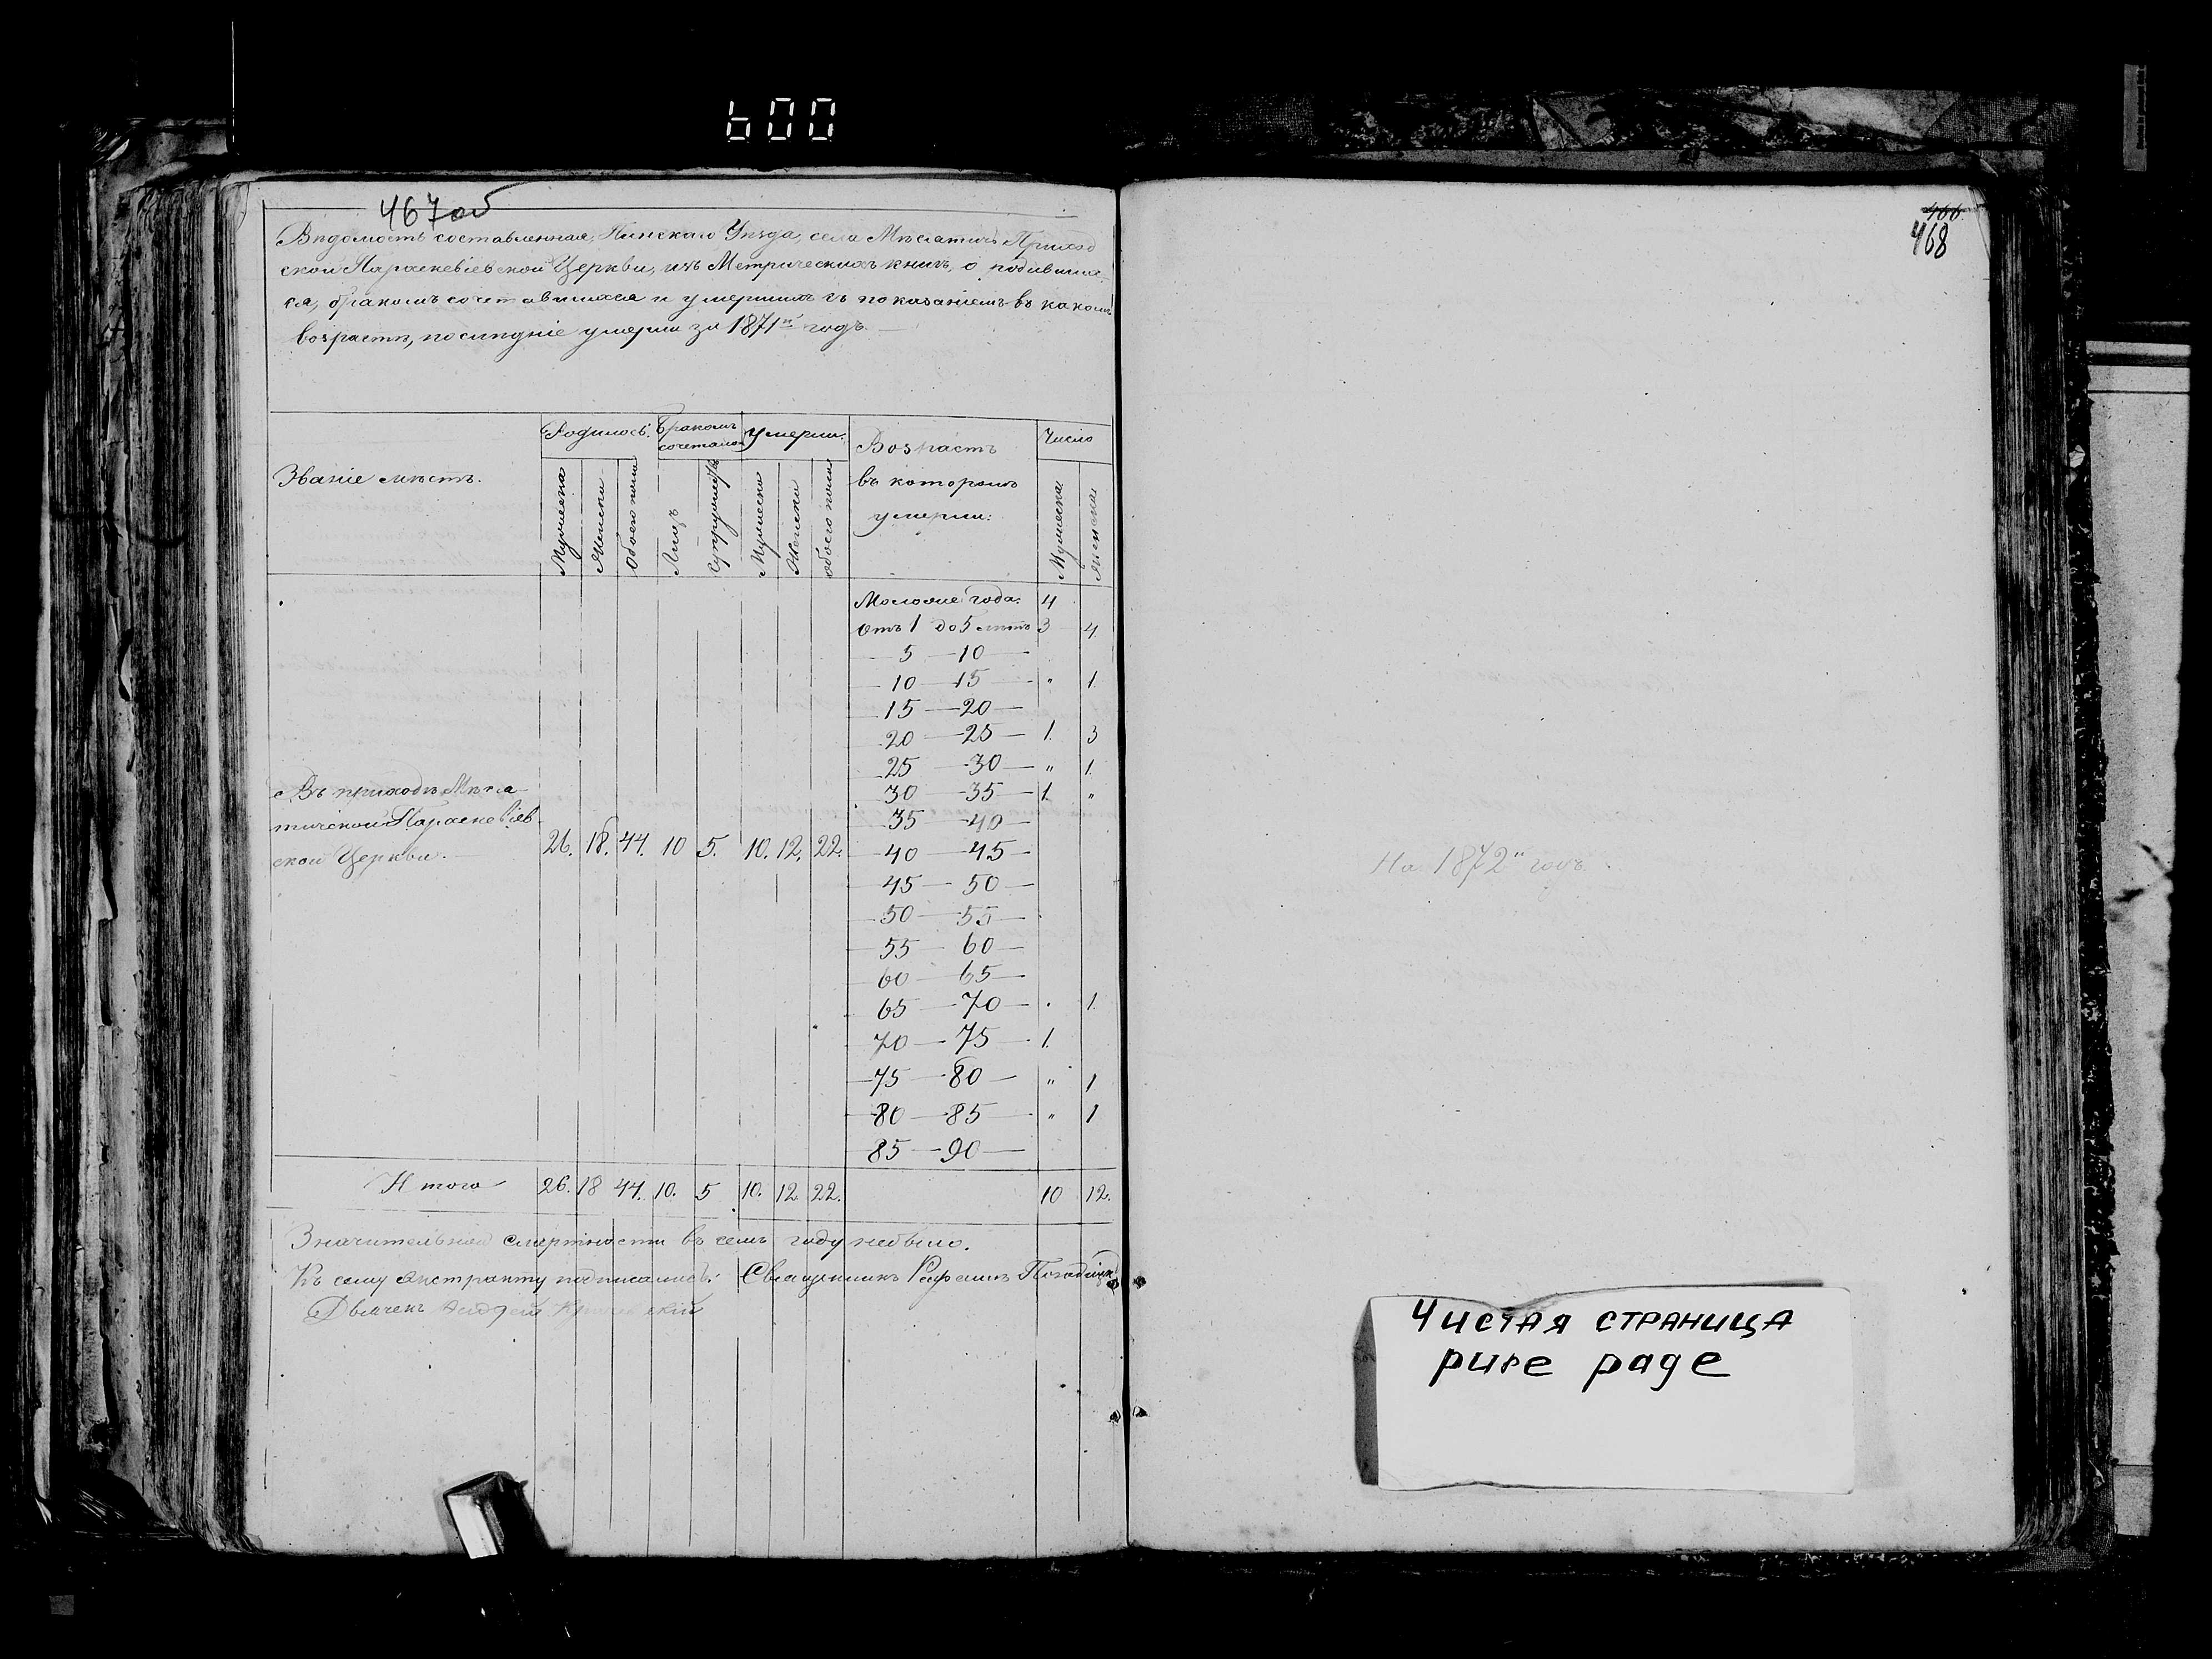 600
467 об
Вѣдомость составленная, Пинскаго Уѣзда, села Мѣсятичъ Приход
ской Параскевіевской Церкви, изъ Метрическихъ книгъ, о родивших
ся, бракомъ сочетавшихся и умершихъ съ показаніемъ въ какомъ
возрастѣ, послѣдніе умерли за 1871й годъ.
Званіе мѣстъ. Родилось. Бракомъ сочеталось Умерли. Возрастъ въ которомъ умерли: Число
Мужеска Женска Обоего пола Лицъ Супружествъ Мужеска Женска обоего пола Мужеска Женска
Моложе года. 4
Отъ 1 до 5 лѣтъ 3 4.
5 — 10 —
10 — 15 — " 1.
15 — 20 —
20 — 25 — 1. 3
25 — 30 — " 1.
30 — 35 — 1. "
35 — 40 —
Въ приходѣ Мѣся
тичской Параскевіев
ской Церкви. 26. 18. 44. 10 5. 10. 12. 22.
40 — 45 —
45 — 50 —
50 — 55 —
55 — 60 —
60 — 65 —
65 — 70 — . 1.
70 — 75 — 1.
75 — 80 — " 1
80 — 85 — " 1
85 — 90 —
Итого 26. 18 44. 10. 5 10. 12. 22. 10 12.
Значительной смертности въ семъ году небыло.
Къ сему экстракту подписались: Священникъ Рафаилъ
Дьячекъ Андрей
466
468
На 1872й годъ.
Чистая страница
pure page